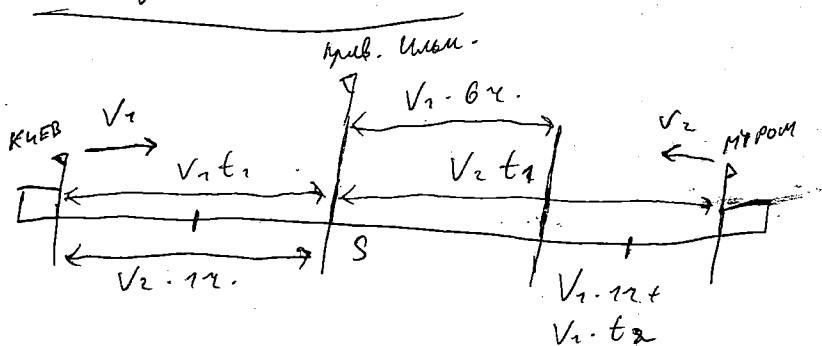 прив. Ильи.
V₁ · 6 ч.
КИЕВ
V₁
V₂
МУРОМ
V₁ t₁
V₂ t₁
S
V₂ · 1 ч.
V₁ · 1 ч +
V₁ · t₂